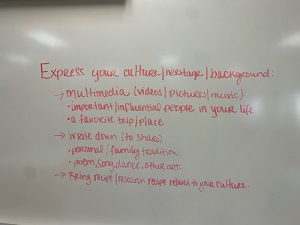 Express your culture/heritage/background:
→ multimedia (videos/pictures/music):
• important/influential people in your life
• a favorite trip/place
→ Write down (to share)
• personal/family tradition
• poem, song, dance, other art.
→ Bring recipe/research recipe related to your culture.